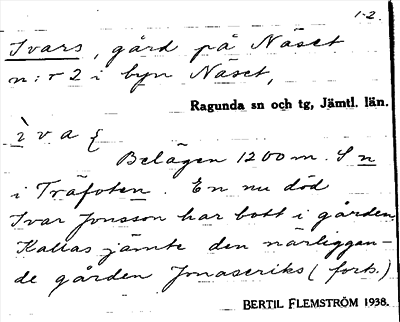 1-2.
Ivars, gård på Näset
n:r 2 i byn Näset,
Ragunda sn och tg, Jämtl. län.
ìva{
Belägen 1200 m. S n
i Träfoten. En nu död
Ivar Jonsson har bott i gården
Kallas jämte den närliggan-
de gården Jonaseriks (forts.)
BERTIL FLEMSTRÖM 1938.